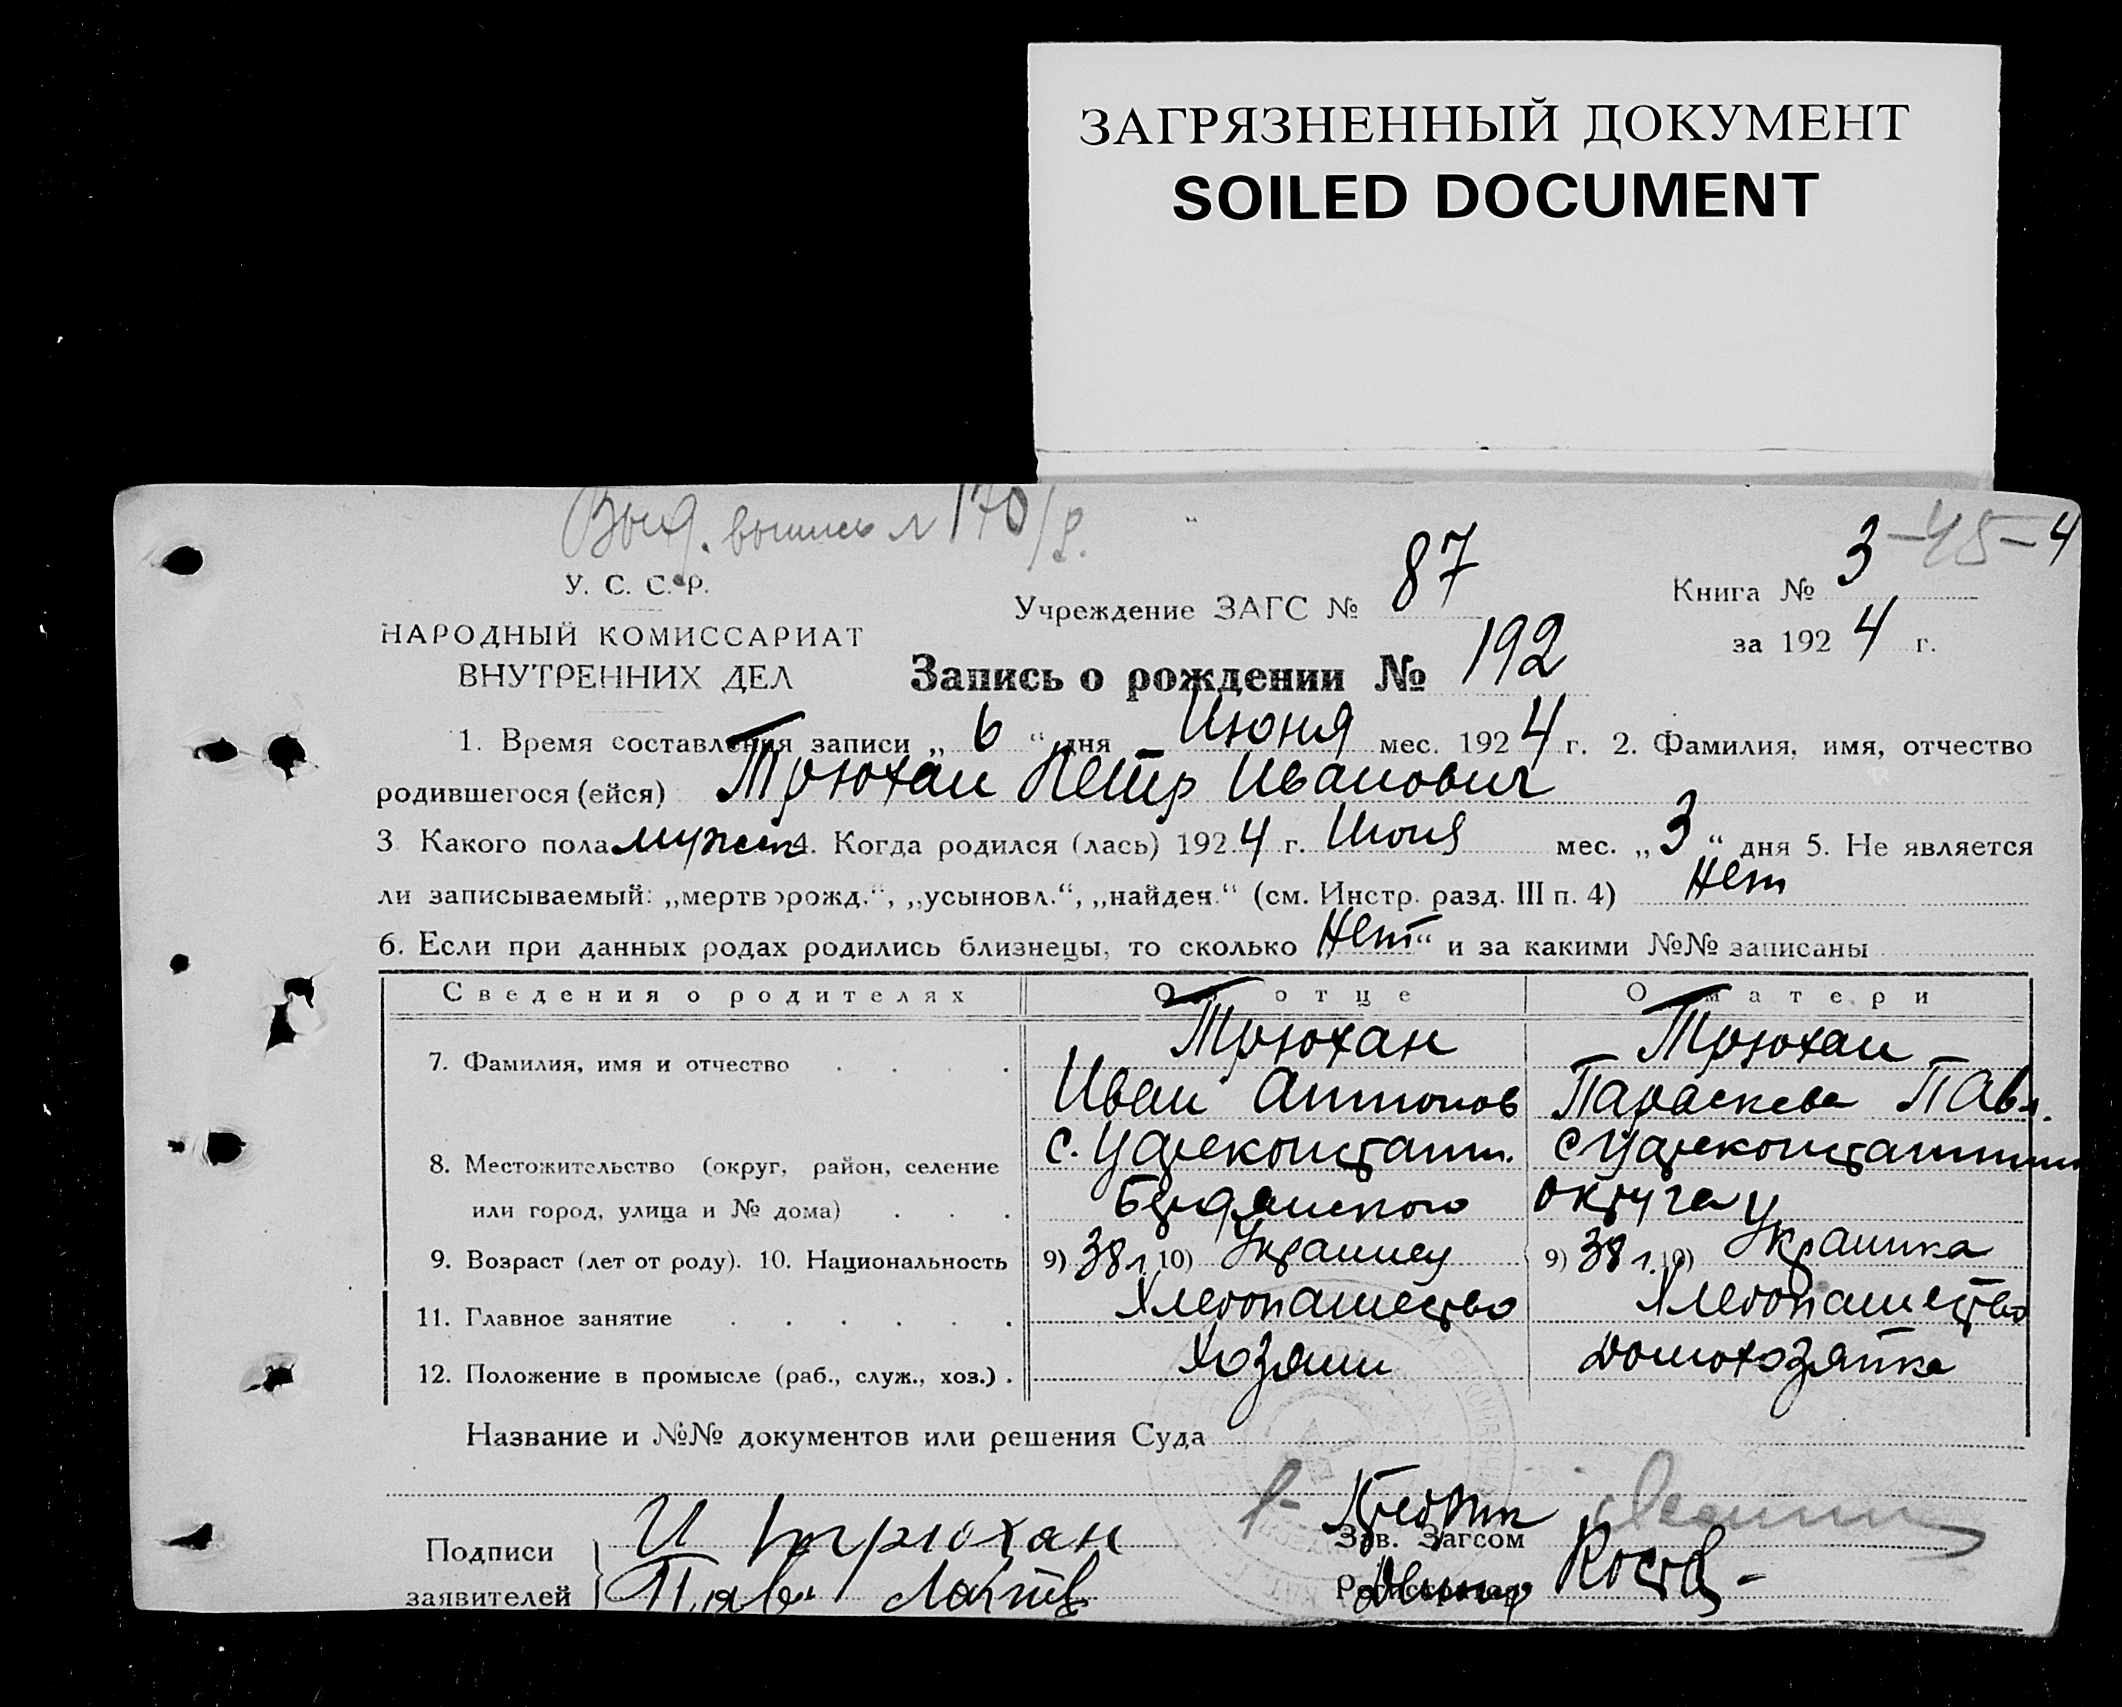 ЗАГРЯЗНЕННЫЙ ДОКУМЕНТ
SOILED DOCUMENT
Выд. выпись № 170/
3-45-4
У. С. С. Р.
НАРОДНЫЙ КОМИССАРИАТ
ВНУТРЕННИХ ДЕЛ
Учреждение ЗАГС № 87
Книга № 3
за 1924 г.
Запись о рождении № 192
1. Время составления записи „ 6 “ дня Июня мес. 1924 г. 2. Фамилия, имя, отчество
родившегося (ейся) Трюхан Петр Иванович
3 Какого пола мужск 4. Когда родился (лась) 1924 г. Июня мес. „ 3 “ дня 5. Не является
ли записываемый: „мертворожд.“, „усыновл.“, „найден.“ (см. Инстр. разд. III п. 4) Нет
6. Если при данных родах родились близнецы, то сколько Нет “ и за какими №№ записаны
Сведения о родителях Об отце О матери
7. Фамилия, имя и отчество . . . . Трюхан Трюхан
Иван Антонов Параскева Павл.
8. Местожительство (округ, район, селение с. Цареконстант. с Цареконстантин
или город, улица и № дома) . . . Бердянского округа У
9. Возраст (лет от роду). 10. Национальность 9) 38 л. 10) Украинец 9) 38 л. 10) Украинка
11. Главное занятие . . . . . . Хлебопашество Хлебопашество
12. Положение в промысле (раб., служ., хоз.) . Хозяин домохозяйка
Название и №№ документов или решения Суда
Подписи И Трюхан Зав. Загсом
заявителей Павл